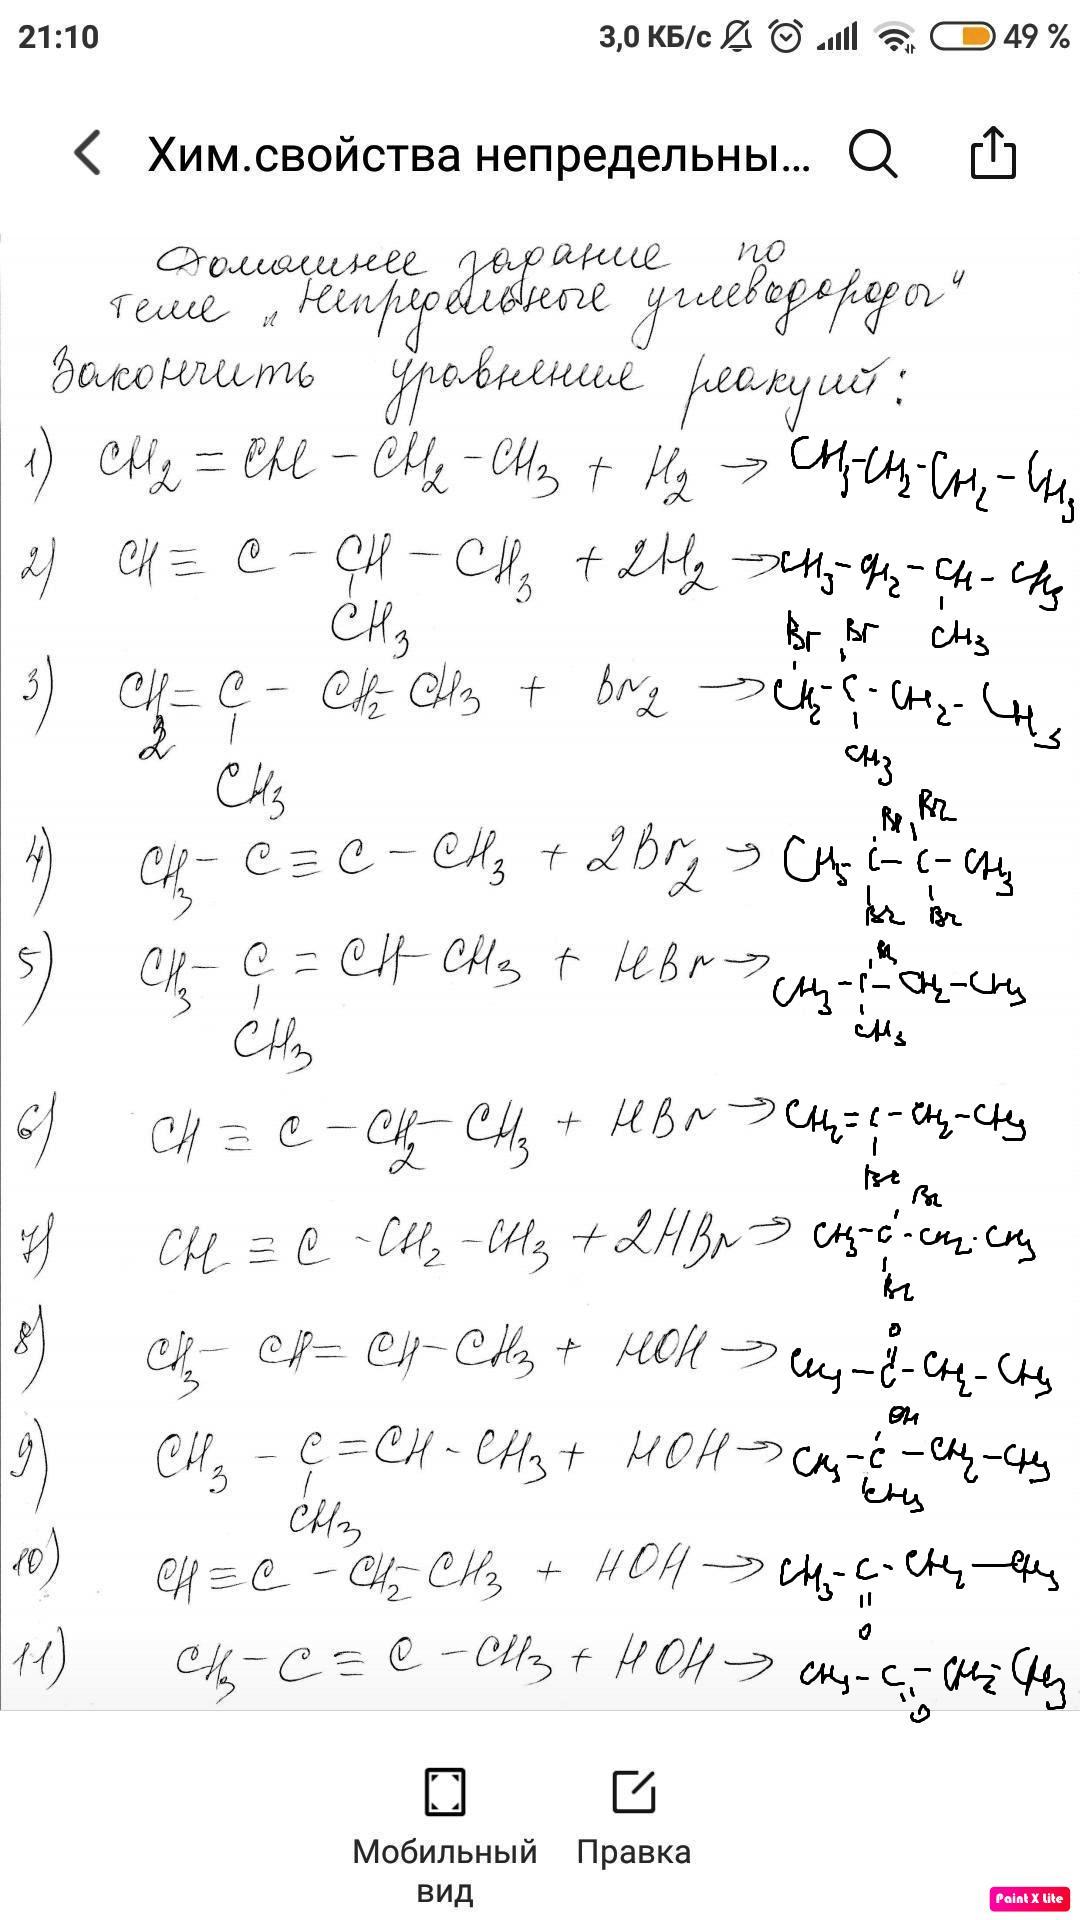 21:10 3,0 КБ/с 49 %
Хим.свойства непредельны...
Домашнее задание по
теме „Непредельные углеводороды"
Закончить уравнение реакций:
1) CH2 = CH - CH2 - CH3 + H2 → CH3-CH2-CH2-CH3
2) CH ≡ C - CH - CH3 + 2H2 → CH3-CH2-CH-CH3
CH3 CH3
Br Br
3) CH2 = C - CH2-CH3 + Br2 → CH2-C-CH2-CH3
CH3 CH3
Br Br
4) CH3- C ≡ C - CH3 + 2Br2 → CH3-C-C-CH3
Br Br
Br
5) CH3- C = CH-CH3 + HBr → CH3-C-CH2-CH3
CH3 CH3
6) CH ≡ C - CH2-CH3 + HBr → CH2=C-CH2-CH3
Br
Br
7) CH ≡ C -CH2-CH3 + 2HBr → CH3-C-CH2-CH3
Br
O
8) CH3- CH= CH-CH3 + HOH → CH3-C-CH2-CH3
OH
9) CH3 - C=CH-CH3 + HOH → CH3-C-CH2-CH3
CH3 CH3
10) CH≡C -CH2-CH3 + HOH → CH3-C-CH2-CH3
O
11) CH3-C≡C-CH3 + HOH → CH3-C-CH2-CH3
O
Мобильный вид
Правка
Paint X Lite